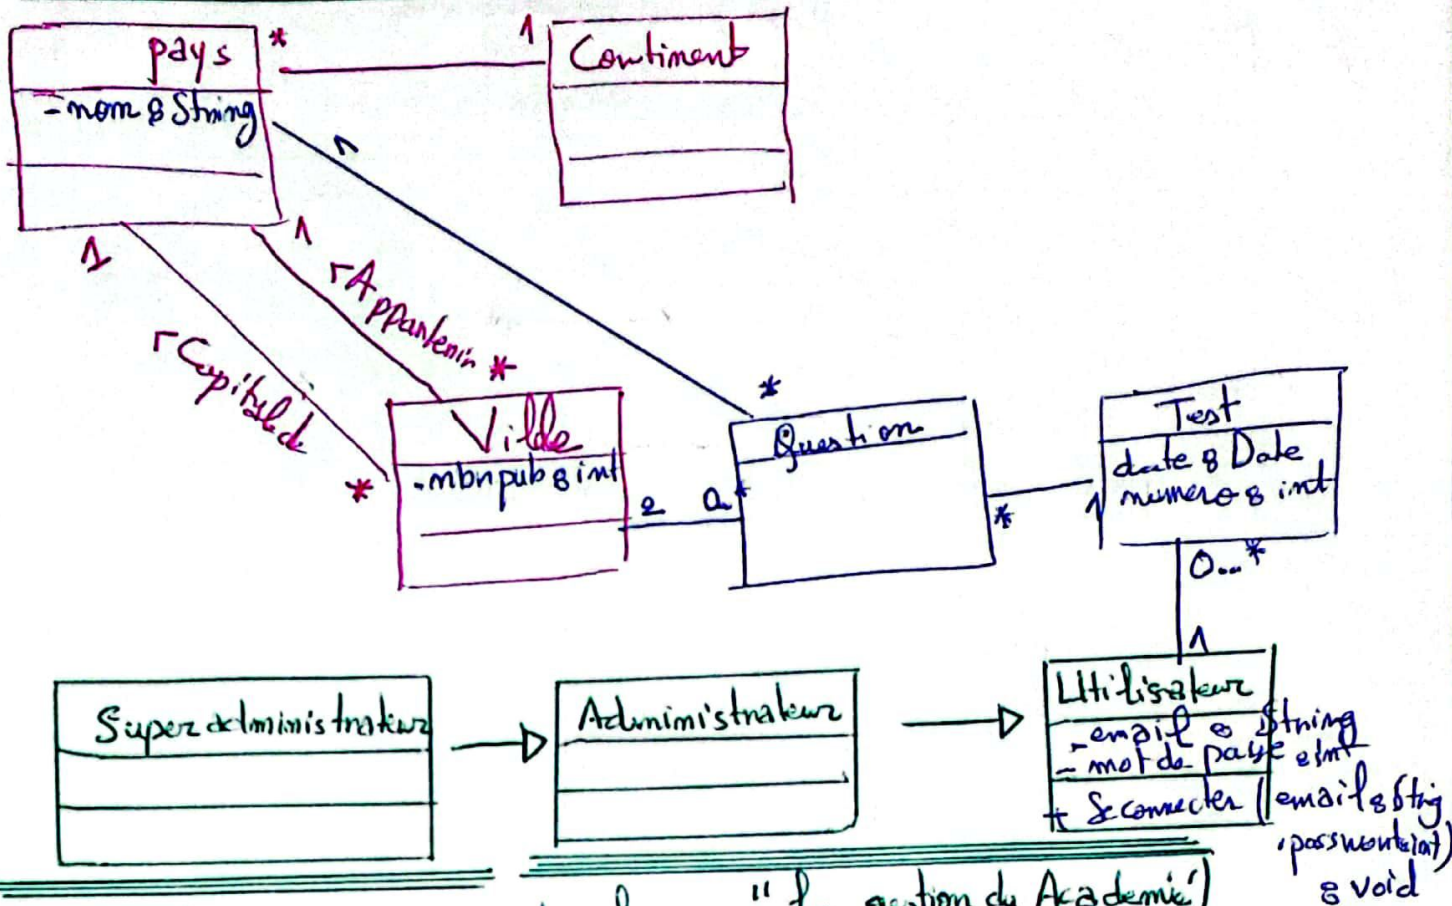 pays
*
1
Continent
- nom : String
1
1
1
r Appartenir
*
r Capital de
*
*
Ville
- nbr pub : int
2
Question
*
1
Test
date : Date
numero : int
0...*
1
Super administrateur
Administrateur
Utilisateur
- email : String
- mot de passe : int
+ Se connecter (email : String
, password : int)
: void
" gestion du Academic")